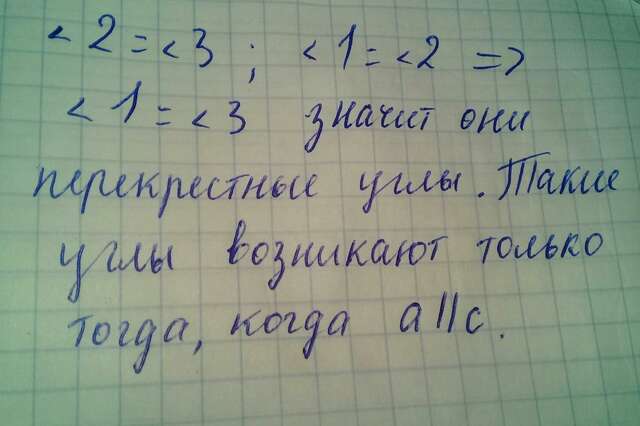 < 2 = < 3 ; < 1 = < 2 =>
< 1 = < 3 значит они
перекрестные углы. Такие
углы возникают только
тогда, когда a || c.